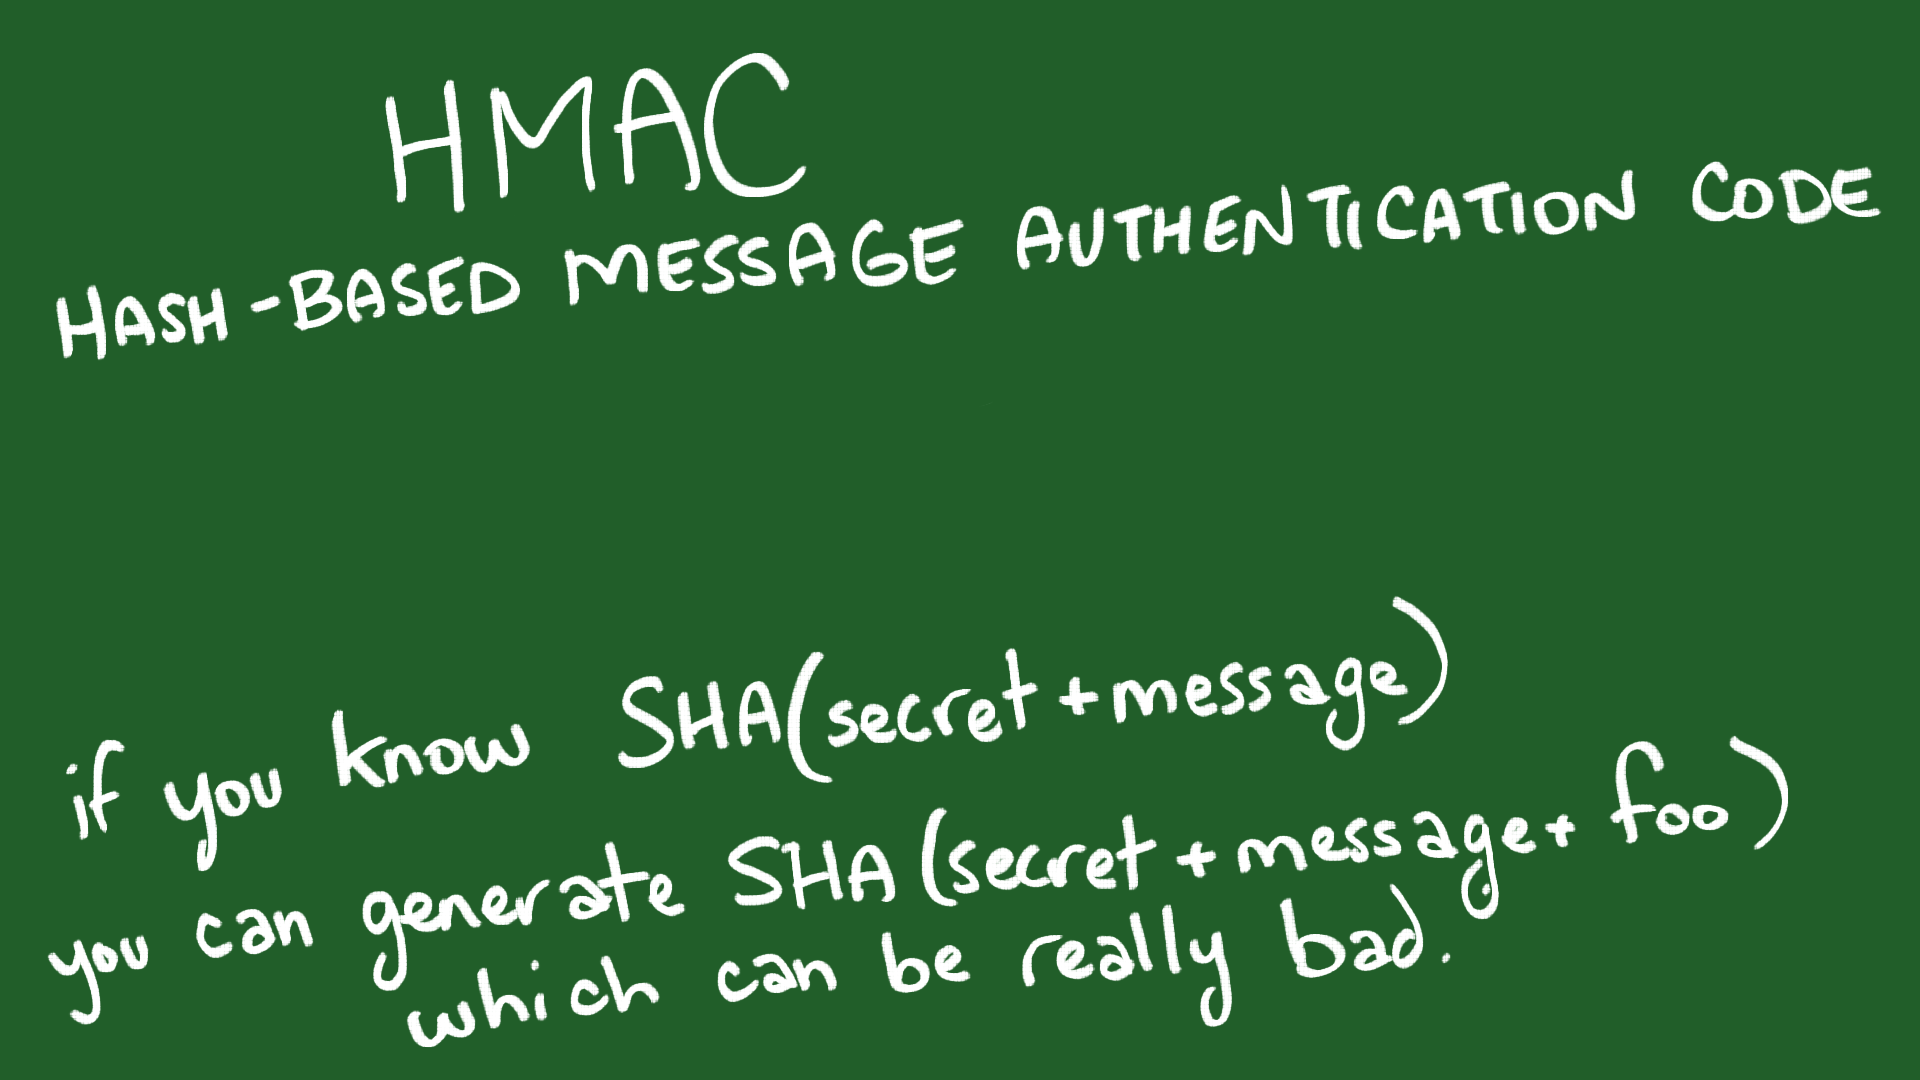 HMAC
HASH-BASED MESSAGE AUTHENTICATION CODE
if you know SHA(secret+message)
you can generate SHA(secret+message+foo)
which can be really bad.